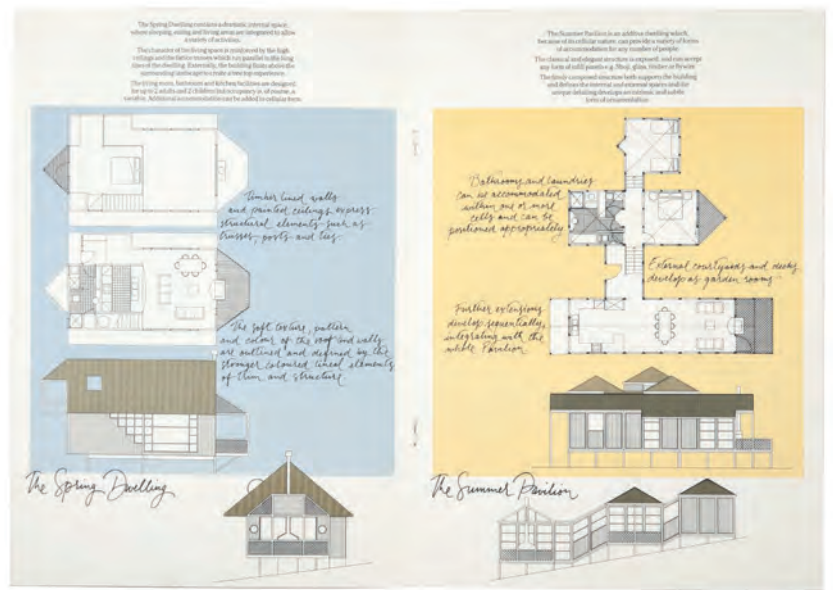 The Spring Dwelling contains a dramatic internal space,
where sleeping, eating and living areas are integrated to allow
a variety of activities.
The character of the living space is reinforced by the high
ceilings and the lattice trusses which run parallel to the long
lines of the dwelling. Externally, the building floats above the
surrounding landscape to create a tree top experience.
The living room, bathroom and kitchen facilities are designed
for up to 2 adults and 2 children but occupancy is, of course,
variable. Additional accommodation can be added in cellular form.
Timber lined walls
and painted ceilings express
structural elements such as
trusses, posts and ties
The soft texture, pattern
and colour of the roof and walls
are outlined and defined by the
stronger coloured lineal elements
of trim and structure.
The Spring Dwelling
The Summer Pavilion is an additive dwelling which,
because of its cellular nature, can provide a variety of forms
of accommodation for any number of people.
The classical and elegant structure is exposed, and can accept
any form of infill panels e.g. fibro, glass, timber or flywire.
The finely composed structure both supports the building
and defines the internal and external spaces and the
unique detailing develops an intrinsic and subtle
form of ornamentation.
Bathrooms and laundries
can be accommodated
within one or more
cells and can be
positioned appropriately
External courtyards and decks
develop as garden rooms
Further extensions
develop sequentially,
integrating with the
whole Pavilion
The Summer Pavilion